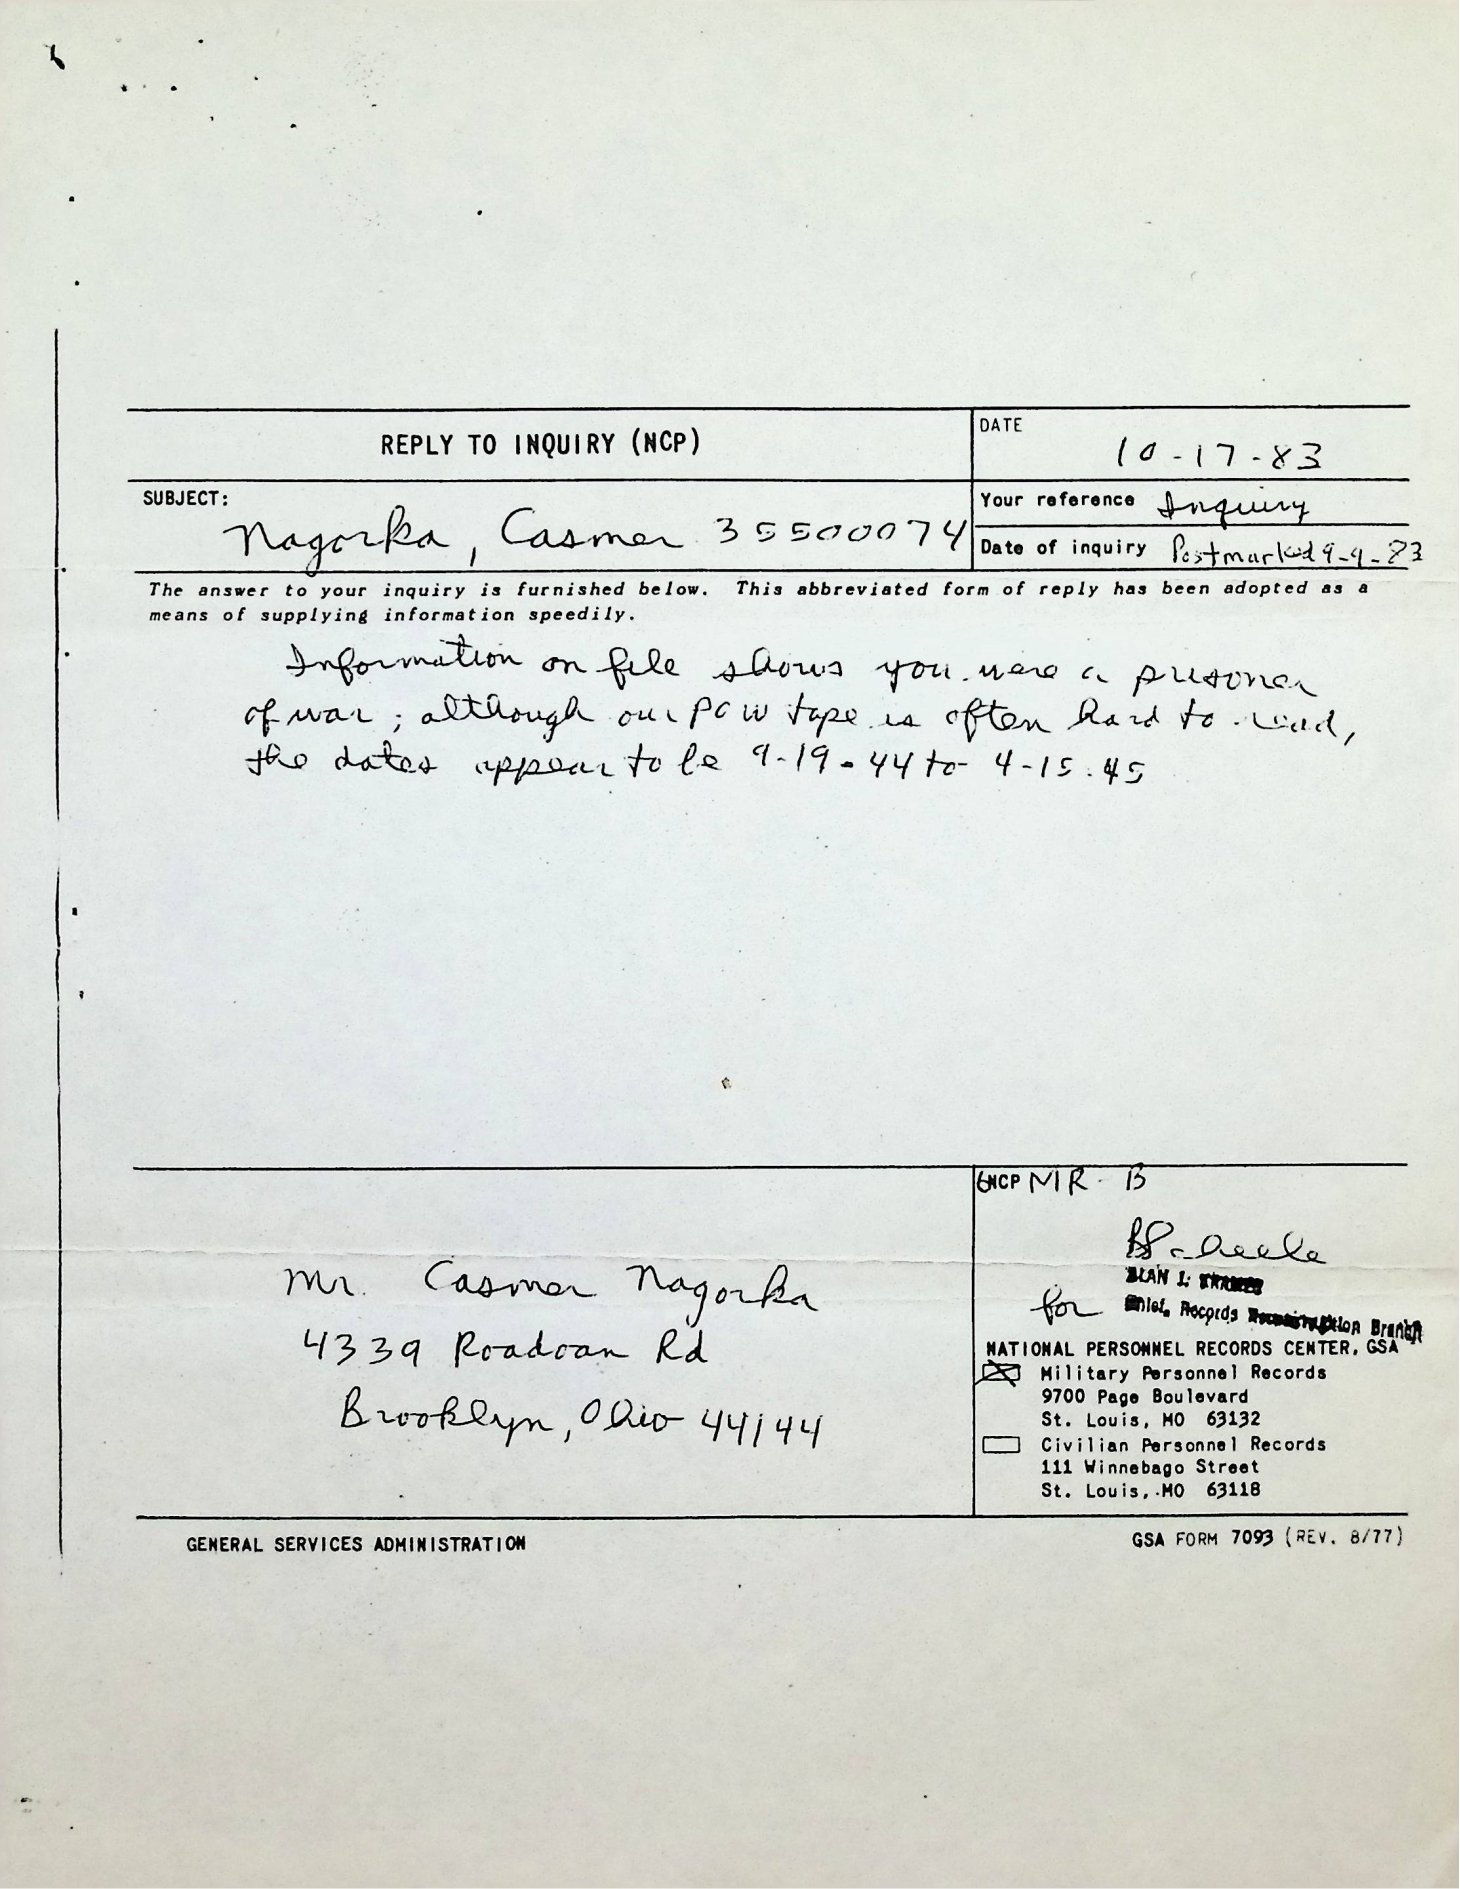 REPLY TO INQUIRY (NCP)
DATE
10-17-83
SUBJECT:
Nagorka, Casmer 35500074
Your reference Inquiry
Date of inquiry Postmarked 9-9-83
The answer to your inquiry is furnished below. This abbreviated form of reply has been adopted as a
means of supplying information speedily.
Information on file shows you were a prisoner
of war; although our POW tape is often hard to read,
the dates appear to be 9-19-44 to 4-15-45
Mr. Casmer Nagorka
4339 Roadoan Rd
Brooklyn, Ohio 44144
NCP MR B
for
Chief, Records Branch
NATIONAL PERSONNEL RECORDS CENTER, GSA
Military Personnel Records
9700 Page Boulevard
St. Louis, MO 63132
Civilian Personnel Records
111 Winnebago Street
St. Louis, MO 63118
GENERAL SERVICES ADMINISTRATION
GSA FORM 7093 (REV. 8/77)